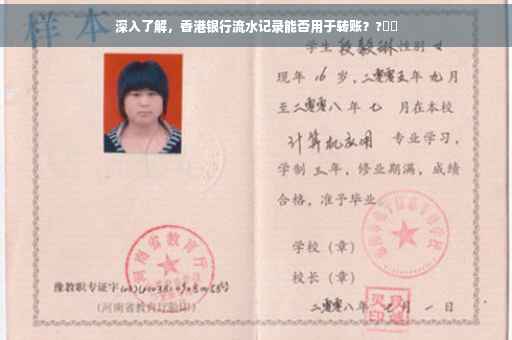 深入了解，香港银行流水记录能否用于转账？?
样本
学生段毅琳性别女
现年16岁，二零零五年九月
至二零零八年七月在本校
计算机应用专业学习，
学制三年，修业期满，成绩
合格，准予毕业
学校（章）
校长（章）
二零零八年七月一日
河南省教育厅
豫教职专证字
（河南省教育厅验印）